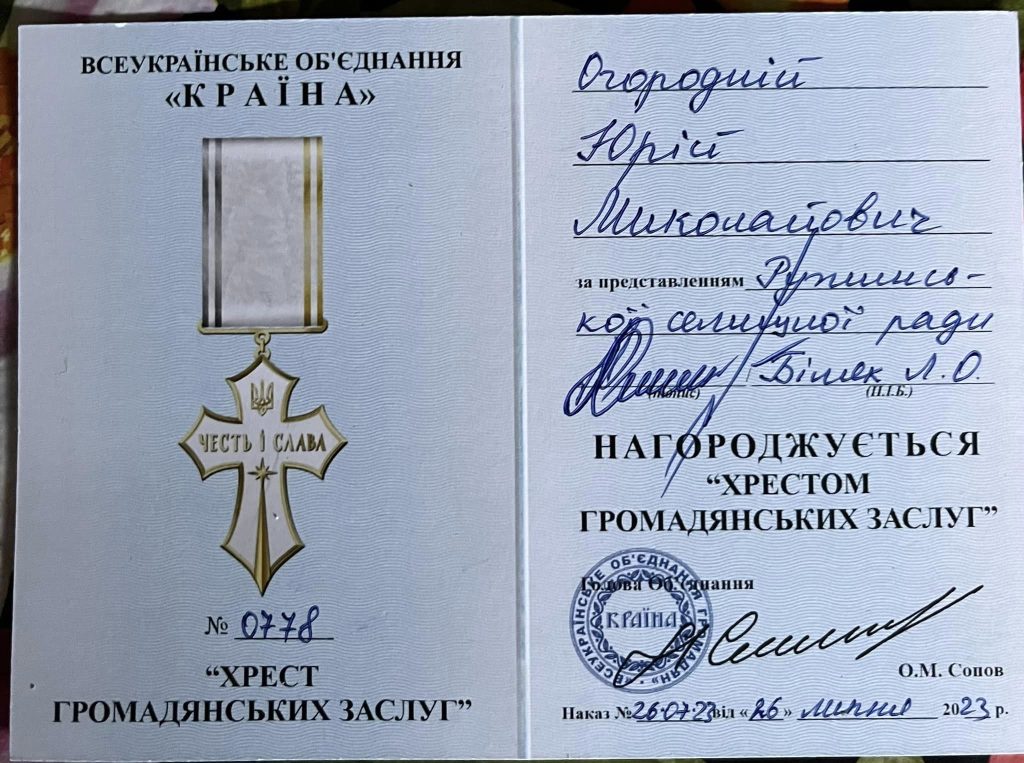 ВСЕУКРАЇНСЬКЕ ОБ'ЄДНАННЯ
«КРАЇНА»
ЧЕСТЬ І СЛАВА
№ 0778
“ХРЕСТ
ГРОМАДЯНСЬКИХ ЗАСЛУГ”
Огородній
Юрій
Миколайович
за представленням Ружинсь-
кої селищної ради
Білек Л.О.
(підпис) (П.І.Б.)
НАГОРОДЖУЄТЬСЯ
“ХРЕСТОМ
ГРОМАДЯНСЬКИХ ЗАСЛУГ”
Голова Об'єднання
ВСЕУКРАЇНСЬКЕ ОБ'ЄДНАННЯ ГРОМАДЯН
КРАЇНА
О.М. Сопов
Наказ № 26.07.23 від «26» липня 2023 р.